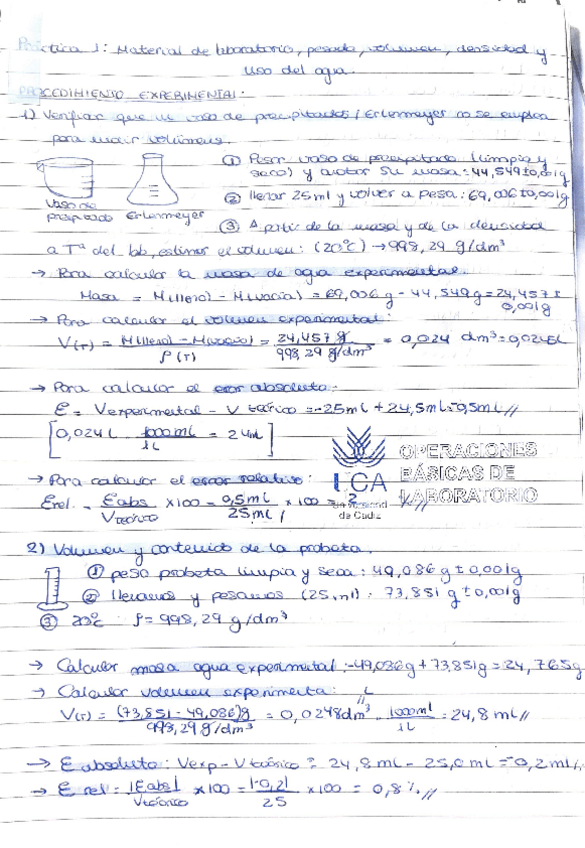 Práctica 1: Material de laboratorio, pesada, volumen, densidad y
uso del agua.
PROCEDIMIENTO EXPERIMENTAL:
1) Verificar que un vaso de precipitados / Erlenmeyer no se emplea
para medir volúmenes.
① Pesar vaso de precipitado (limpio y
seco) y anotar su masa = 44,549±0,001g
② llenar 25ml y volver a pesar: 69,006±0,001g
Vaso de
precipitado Erlenmeyer
③ A partir de la masa y de la densidad
a Tª del lab, estimar el volumen: (20ºC) → 998,29 g/dm³
→ Para calcular la masa de agua experimental.
Masa = M(lleno) - M(vacio) = 69,006g - 44,549g = 24,457 ±
0,001g
→ Para calcular el volumen experimental:
V(T) = M(lleno) - M(vacio) / ρ(T) = 24,457 g / 998,29 g/dm³ = 0,024 dm³ = 0,0245L
→ Para calcular el error absoluto:
E = Vexperimental - V teórico = -25mL + 24,5mL = 0,5mL //
[0,024L . 1000mL / 1L = 24mL]
→ Para calcular el error relativo:
Erel. = Eabs / Vteórico x100 = 0,5mL / 25mL x 100 = 2 % //
UCA
de Cádiz
OPERACIONES
BÁSICAS DE
LABORATORIO
2) Volumen y contenido de la probeta.
① peso probeta limpia y seca: 49,086 g ± 0,001g
② llenamos y pesamos (25ml): 73,851 g ± 0,001g
③ 20ºC ρ = 998,29 g/dm³
→ Calcular masa agua experimental: -49,086g + 73,851g = 24,765g
→ Calcular volumen experimental:
V(T) = (73,851 - 49,086)g / 998,29 g/dm³ = 0,0248 dm³ // L . 1000ml / 1L = 24,8 mL //
→ E absoluto: Vexp - V teórico = 24,8 mL - 25,0 mL = -0,2 mL //
→ E rel = |Eabs| / Vteórico x100 = |-0,2| / 25 x 100 = 0,8 % //